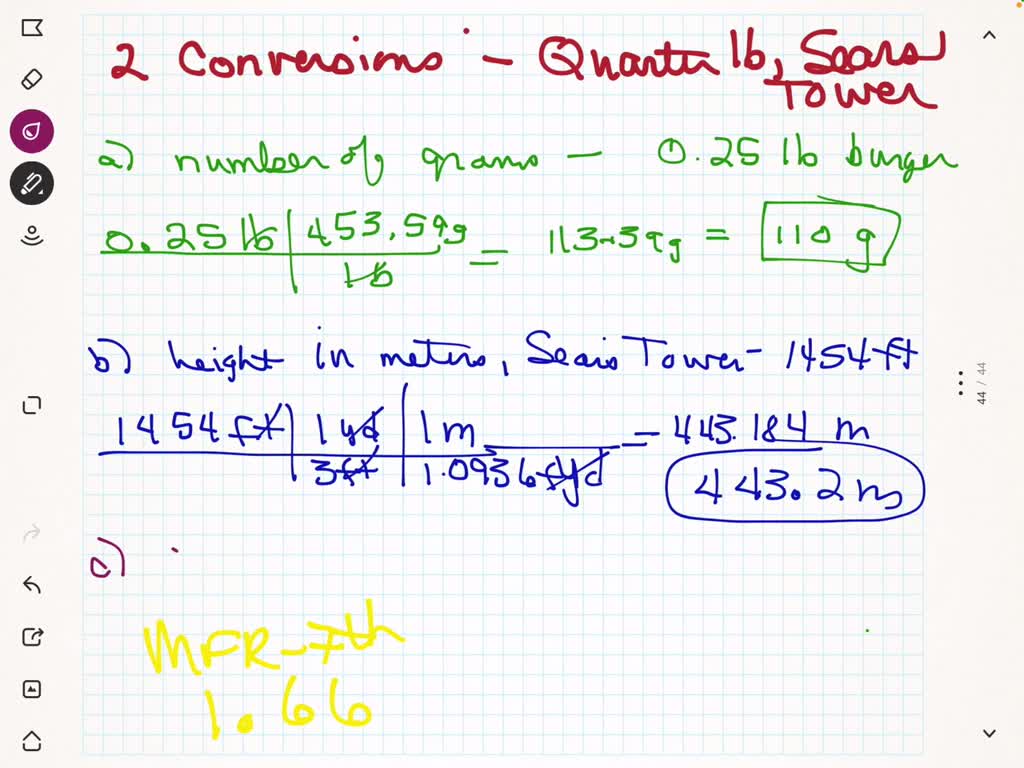 2 Conversions - Quarter lb, Sears
Tower
a) number of grams - 0.25 lb burger
0.25 lb | 453.59g = 113.39g = 110 g
1 lb
b) height in meters, Sears Tower - 1454 ft
1454 ft | 1 yd | 1 m = 443.184 m
3 ft 1.0936 yd 443.2 m
c)
MFR-7th
1.66
44 / 44